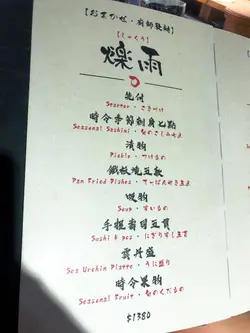 【おまかせ・廚師發辦】
【しゃくう】
爍雨
先付
Starter・さきづけ
時令季節刺身七點
Seasonal Sashimi・旬のさしみ七点
漬物
Pickle・つけもの
鐵板燒五款
Pan Fried Dishes・てっぱん焼き五点
吸物
Soup・すいもの
手握壽司四貫
Sushi 4 pcs・にぎりすし四貫
雲丹盛
Sea Urchin Platte・うに盛り
時令果物
Seasonal Fruit・旬のくだもの
$1380